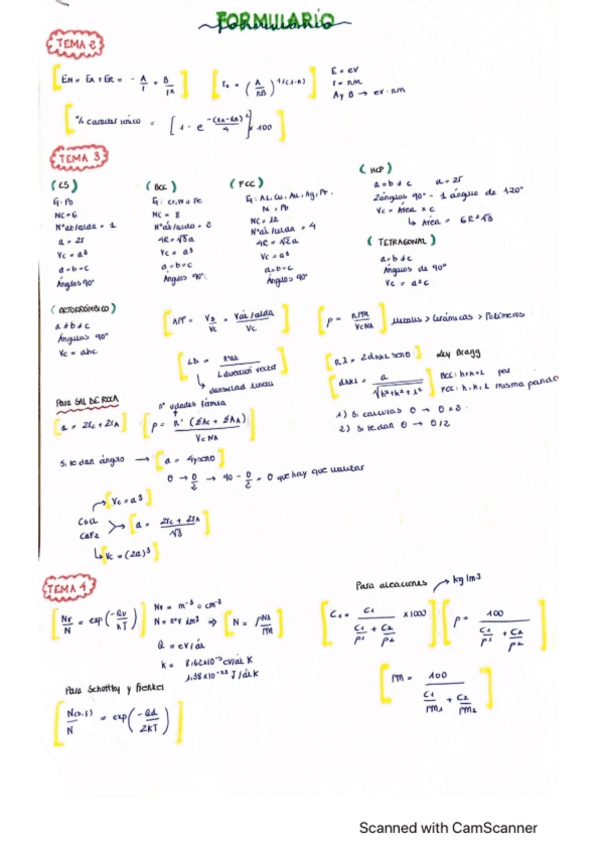 FORMULARIO
TEMA 2
[EN = EA + ER = - A/r + B/r^n]
[r0 = (A/nB)^1/(1-n)]
E = eV
r = nm
A y B → eV·nm
[% carácter iónico = [1 - e^-(XA-XB)²/4] x 100]
TEMA 3
(CS)
Ej: Po
NC = 6
Nºat/celda = 1
a = 2r
Vc = a³
a=b=c
Ángulos 90º
(BCC)
Ej: Cr, W o Fe
NC = 8
Nºat/celda = 2
4R = √3a
Vc = a³
a=b=c
Ángulos 90º
(FCC)
Ej: Al, Cu, Au, Ag, Pt,
Ni, Pb
NC = 12
Nºat/celda = 4
4R = √2a
Vc = a³
a=b=c
Ángulos 90º
(HCP)
a=b≠c a=2r
2ángulos 90º - 1 ángulo de 120º
Vc = Área x c
↳ Área = 6R²√3
(TETRAGONAL)
a=b≠c
Ángulos de 90º
Vc = a²c
(ORTORRÓMBICO)
a≠b≠c
Ángulos 90º
Vc = abc
[APF = Vs/Vc = Vat/celda/Vc]
[ρ = nPM/VcNA] Metales > Cerámicas > Polímeros
[LD = Nºat/Ldirección vector]
↳ densidad lineal
[nλ = 2dhkl senθ] Ley Bragg
[dhkl = a/√h²+k²+l²]
BCC: h+k+l par
FCC: h, k, l misma paridad
1) Si calculas θ → θ x 2
2) Si te dan θ → θ/2
Para SAL DE ROCA
[a = 2rc + 2rA]
nº udades fórmula
[ρ = n' (ΣAc + ΣAA)/VcNA]
Si te dan ángulo → [a = 4rsenθ]
θ → θ/2 → 90 - θ/2 = θ que hay que utilizar
[Vc = a³]
CsCl
CaF2
[a = 2rc + 2rA/√3]
↳ [Vc = (2a)³]
TEMA 4
[Nv/N = exp(-Qv/kT)]
Nv = m⁻³ o cm⁻³
N = nºv/m³ ⇒ [N = ρNA/PM]
Q = eV/át
k = 8,62x10⁻⁵ eV/át K
1,38x10⁻²³ J/át K
Para Schottky y Frenkel
[N(s,f)/N = exp(-Qd/2kT)]
Para aleaciones → kg/m³
[C1 = C1/ρ1 / C1/ρ1 + C2/ρ2 x100]
[ρ = 100 / C1/ρ1 + C2/ρ2]
[PM = 100 / C1/PM1 + C2/PM2]
Scanned with CamScanner